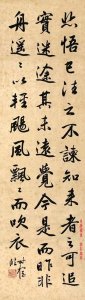 悟已往之不諫知来者之可追
實迷途其未遠覺今是而昨非
舟遥〻以軽颺風飄〻而吹衣